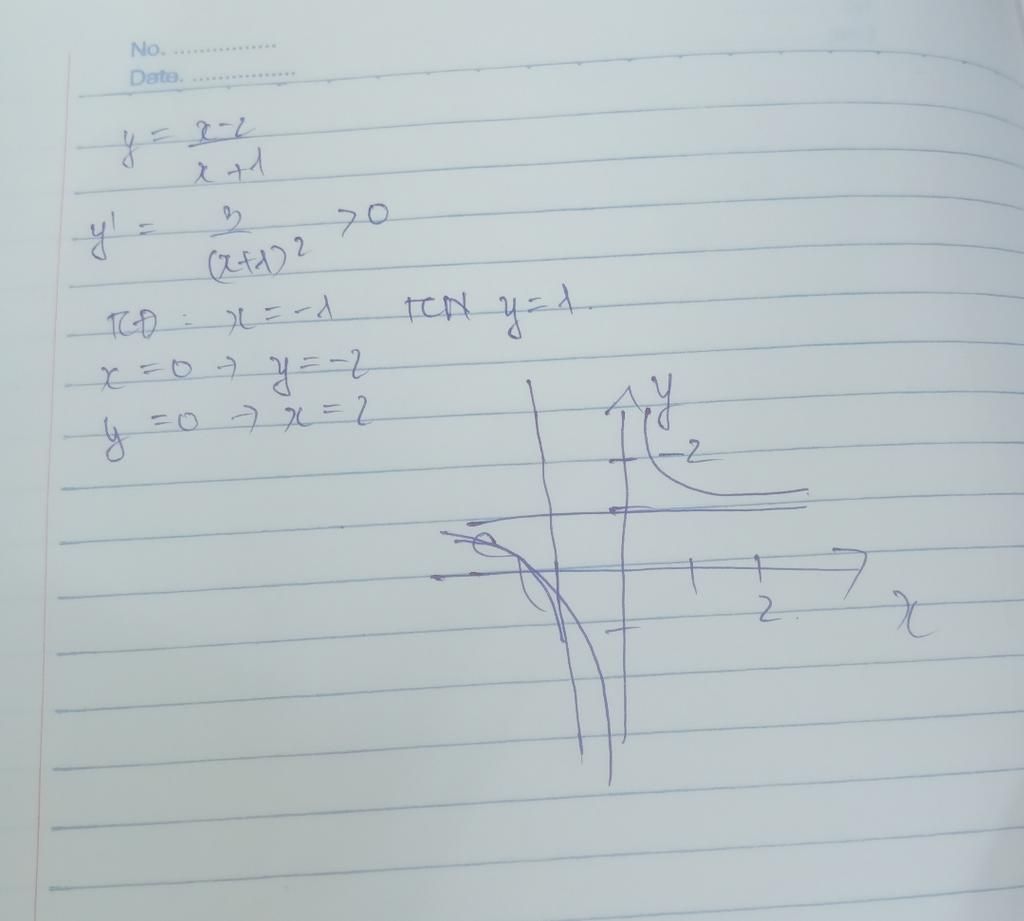 No. ................
Date. ................
y = \frac{x-2}{x+1}
y' = \frac{3}{(x+1)^2} > 0
TCĐ : x = -1 TCN y = 1.
x = 0 → y = -2
y = 0 → x = 2
y
-2
2
x